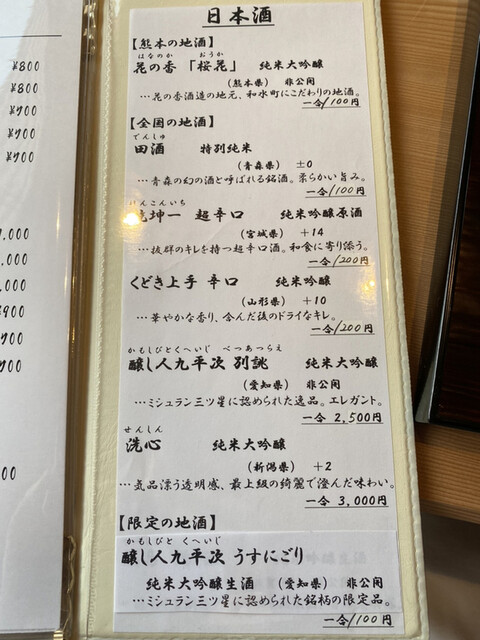 日本酒
【熊本の地酒】
はなのか おうか
花の香 「桜花」 純米大吟醸
（熊本県） 非公開
…花の香酒造の地元、和水町にこだわりの地酒。
一合/100円
【全国の地酒】
でんしゅ
田酒 特別純米
（青森県） ±0
…青森の幻の酒と呼ばれる銘酒。柔らかい旨み。
一合/100円
けんこんいち
乾坤一 超辛口 純米吟醸原酒
（宮城県） +14
…抜群のキレを持つ超辛口酒。和食に寄り添う。
一合/200円
くどき上手 辛口 純米吟醸
（山形県） +10
…華やかな香り、含んだ後のドライなキレ。
一合/200円
かもしびとくへいじ べつあつらえ
醸し人九平次 別誂 純米大吟醸
（愛知県） 非公開
…ミシュラン三ツ星に認められた逸品。エレガント。
一合 2,500円
せんしん
洗心 純米大吟醸
（新潟県） +2
…気品漂う透明感、最上級の綺麗で澄んだ味わい。
一合 3,000円
【限定の地酒】
かもしびと くへいじ
醸し人九平次 うすにごり
純米大吟醸生酒 （愛知県） 非公開
…ミシュラン三ツ星に認められた銘柄の限定品。
一合/100円
¥800
¥800
¥700
¥700
¥700
,000
,000
,000
900
700
700
00